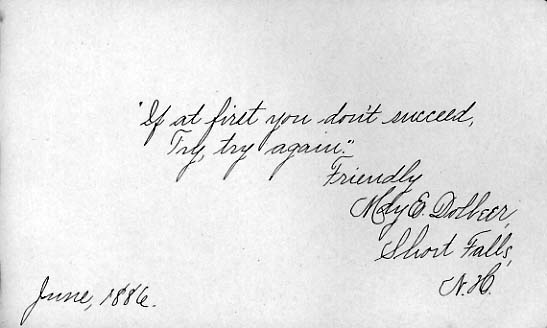 "If at first you don't succeed,
Try, try again."
Friendly
May E. Dolbeer,
Short Falls,
N.H.
June, 1886.